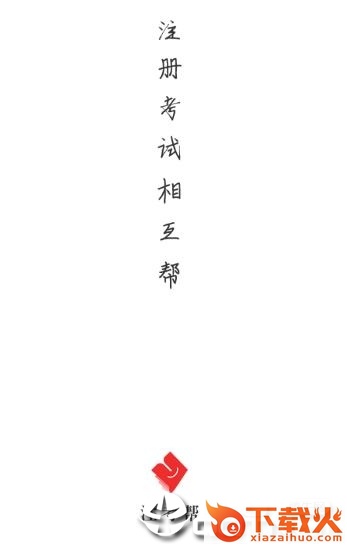 注册考试相互帮
帮
下载火
xiazaihuo.com